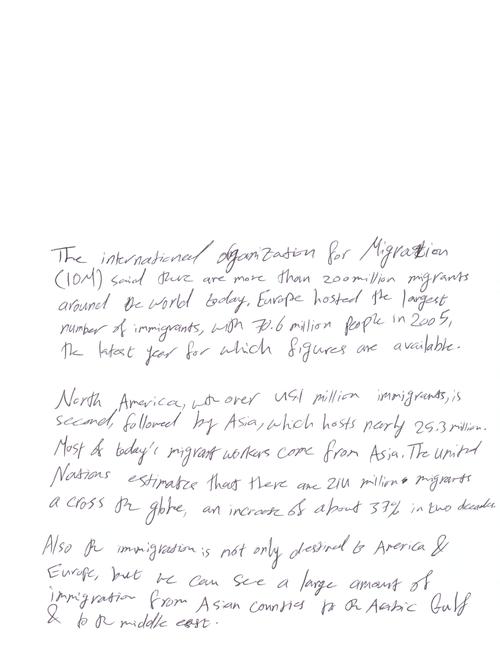 The international organization for Migration
(IOM) said there are more than 200 million migrants
around the world today. Europe hosted the largest
number of immigrants, with 70.6 million people in 2005,
the latest year for which figures are available.
North America, with over 45.1 million immigrants, is
second, followed by Asia, which hosts nearly 25.3 million.
Most of today's migrant workers come from Asia. The united
Nations estimates that there are 214 million migrants
a cross the globe, an increase of about 37% in two decades
Also the immigration is not only destined to America &
Europe, but we can see a large amount of
immigration from Asian countries to the Arabic Gulf
& to the middle east.